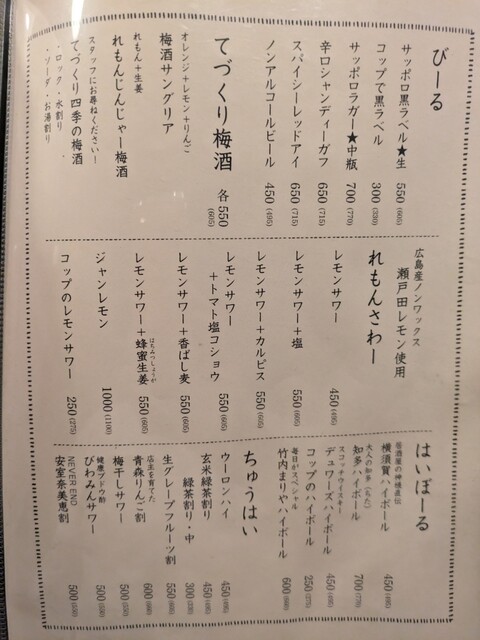 びーる
サッポロ黒ラベル★生 550 (605)
コップで黒ラベル 300 (330)
サッポロラガー★中瓶 700 (770)
辛口シャンディーガフ 650 (715)
スパイシーレッドアイ 650 (715)
ノンアルコールビール 450 (495)
てづくり梅酒 各 550 (605)
オレンジ+レモン+りんご
梅酒サングリア
れもん+生姜
れもんじんじゃー梅酒
スタッフにお尋ねください!
てづくり四季の梅酒
・ロック・水割り
・ソーダ・お湯割り
広島産ノンワックス
瀬戸田レモン使用
れもんさわー
レモンサワー 450 (495)
レモンサワー+塩 550 (605)
レモンサワー+カルピス 550 (605)
レモンサワー
+トマト塩コショウ 550 (605)
レモンサワー+香ばし麦 550 (605)
レモンサワー+蜂蜜生姜 550 (605)
はちみつしょうが
ジャンレモン 1000 (1100)
コップのレモンサワー 250 (275)
はいぼーる
居酒屋の神様直伝
横須賀ハイボール 450 (495)
大人の知多(ちた)
知多ハイボール 700 (770)
スコッチウイスキー
デュワーズハイボール 450 (495)
コップのハイボール 250 (275)
毎日がスペシャル
竹内まりやハイボール 600 (660)
ちゅうはい
ウーロンハイ 450 (495)
玄米緑茶割り 450 (495)
緑茶割り・中 300 (330)
生グレープフルーツ割 550 (605)
店主を育てた
青森りんご割 600 (660)
梅干しサワー 500 (550)
健康ブドウ酢
びわみんサワー 500 (550)
NEVER END
安室奈美恵割 500 (550)